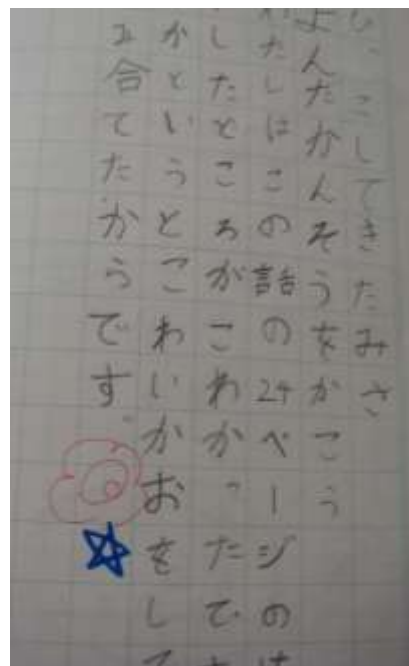 ひっこしてきたみさ
よんだかんそうをかこう
わたしはこの話の24ページの
したところがこわかったで
がというとこわいかおをして
合てたからです。